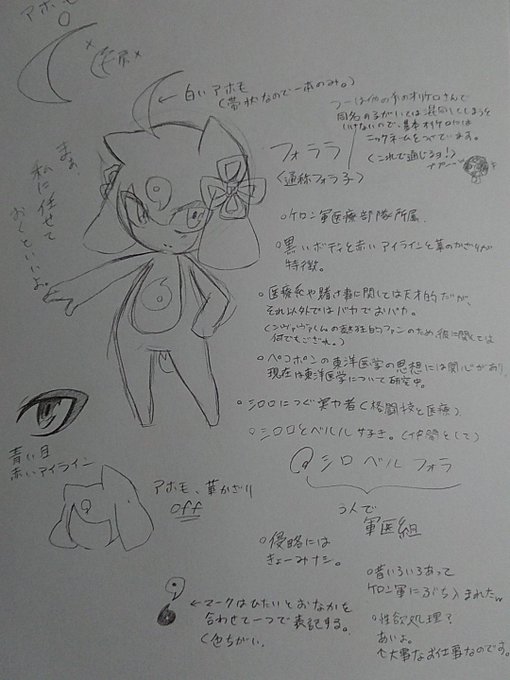 アホモ
白いアホモ
(帯状なので一本のみ。)
まぁ、
私に任せて
おくといいよ。
フォララ
(通称フォラ子)
同名の子がいては混同してしまうと
いけないので、基本オリケロには
ニックネームをつけています。
(これで通じるョ!)
◦ケロン軍医療部隊所属。
◦黒いボディと赤いアイラインと華のかざりが
特徴。
◦医療系や賭け事に関しては天才的だが、
それ以外ではバカでおバカ。
何でもござれ。)
◦ペコポンの東洋医学の思想には関心があり、
現在は東洋医学について研究中。
◦シロロにつぐ実力者(格闘技と医療)
◦シロロとベルルすき。(仲間として)
@シロ ベル フォラ
3人で
軍医組
青い目
赤いアイライン
アホモ、華かざり
off
◦侵略には
きょーみナシ。
◦昔いろいろあって
ケロン軍にぶち込まれたw
◦性欲処理?
あいよ。
大事なお仕事なのです。
←マークはひたいとおなかを
合わせて一つで表記する。
(色ちがい。